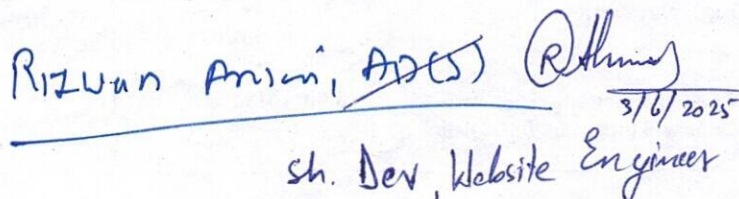 Rizwan Ansari, AD(S)
3/6/2025
Sh. Dev, Website Engineer